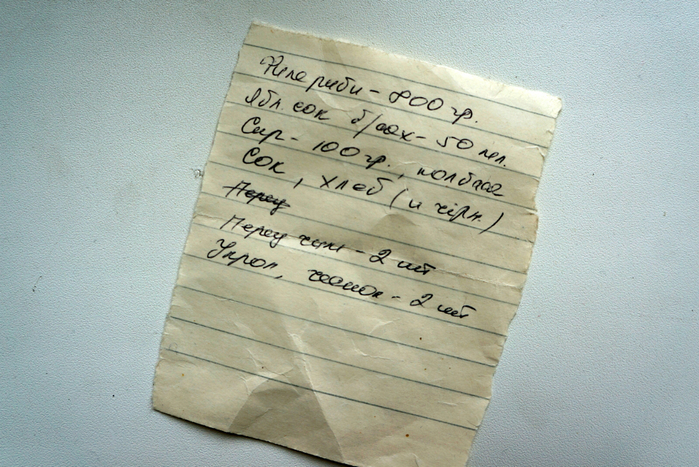 Філе риби - 800 гр.
Ябл. сок б/сах - 50 мл.
Сир - 100 гр., колбаса
Сок, хлеб (и чёрн.)
Перец
Перец чили - 2 шт
Укроп, чеснок - 2 шт